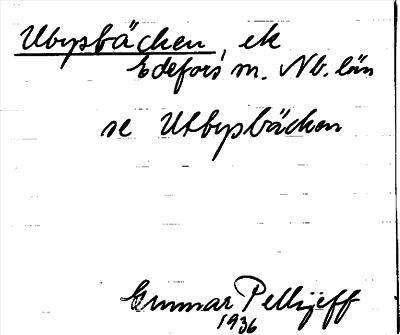 Ubysbäcken, ek
Edefors sn. Nb. län
se Utbysbäcken
Gunnar Pellijeff
1936